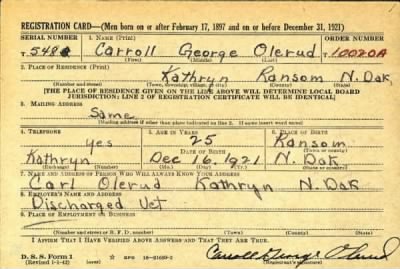 REGISTRATION CARD—(Men born on or after February 17, 1897 and on or before December 31, 1921)
SERIAL NUMBER 1. NAME (Print) ORDER NUMBER
T 548 Carroll George Olerud T 10020A
(First) (Middle) (Last)
2. PLACE OF RESIDENCE (Print)
Kathryn Ransom N. Dak
(Number and street) (Town, township, village, or city) (County) (State)
[THE PLACE OF RESIDENCE GIVEN ON THE LINE ABOVE WILL DETERMINE LOCAL BOARD
JURISDICTION; LINE 2 OF REGISTRATION CERTIFICATE WILL BE IDENTICAL]
3. MAILING ADDRESS
Same
[Mailing address if other than place indicated on line 2. If same insert word same]
4. TELEPHONE 5. AGE IN YEARS 6. PLACE OF BIRTH
yes 25 Ransom
DATE OF BIRTH
Kathryn Dec 16, 1921 N. Dak
7. NAME AND ADDRESS OF PERSON WHO WILL ALWAYS KNOW YOUR ADDRESS
Carl Olerud Kathryn N. Dak
8. EMPLOYER'S NAME AND ADDRESS
Discharged Vet
9. PLACE OF EMPLOYMENT OR BUSINESS
(Number and street or R. F. D. number) (Town) (County) (State)
I AFFIRM THAT I HAVE VERIFIED ABOVE ANSWERS AND THAT THEY ARE TRUE.
D. S. S. Form 1
(Revised 1-1-42) GPO 16-21630-2 Carroll George Olerud